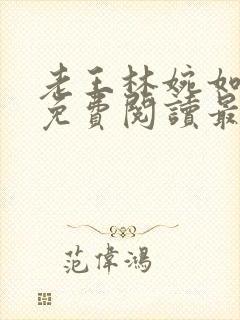 老王林婉如
免費閱讀最
范偉鴻